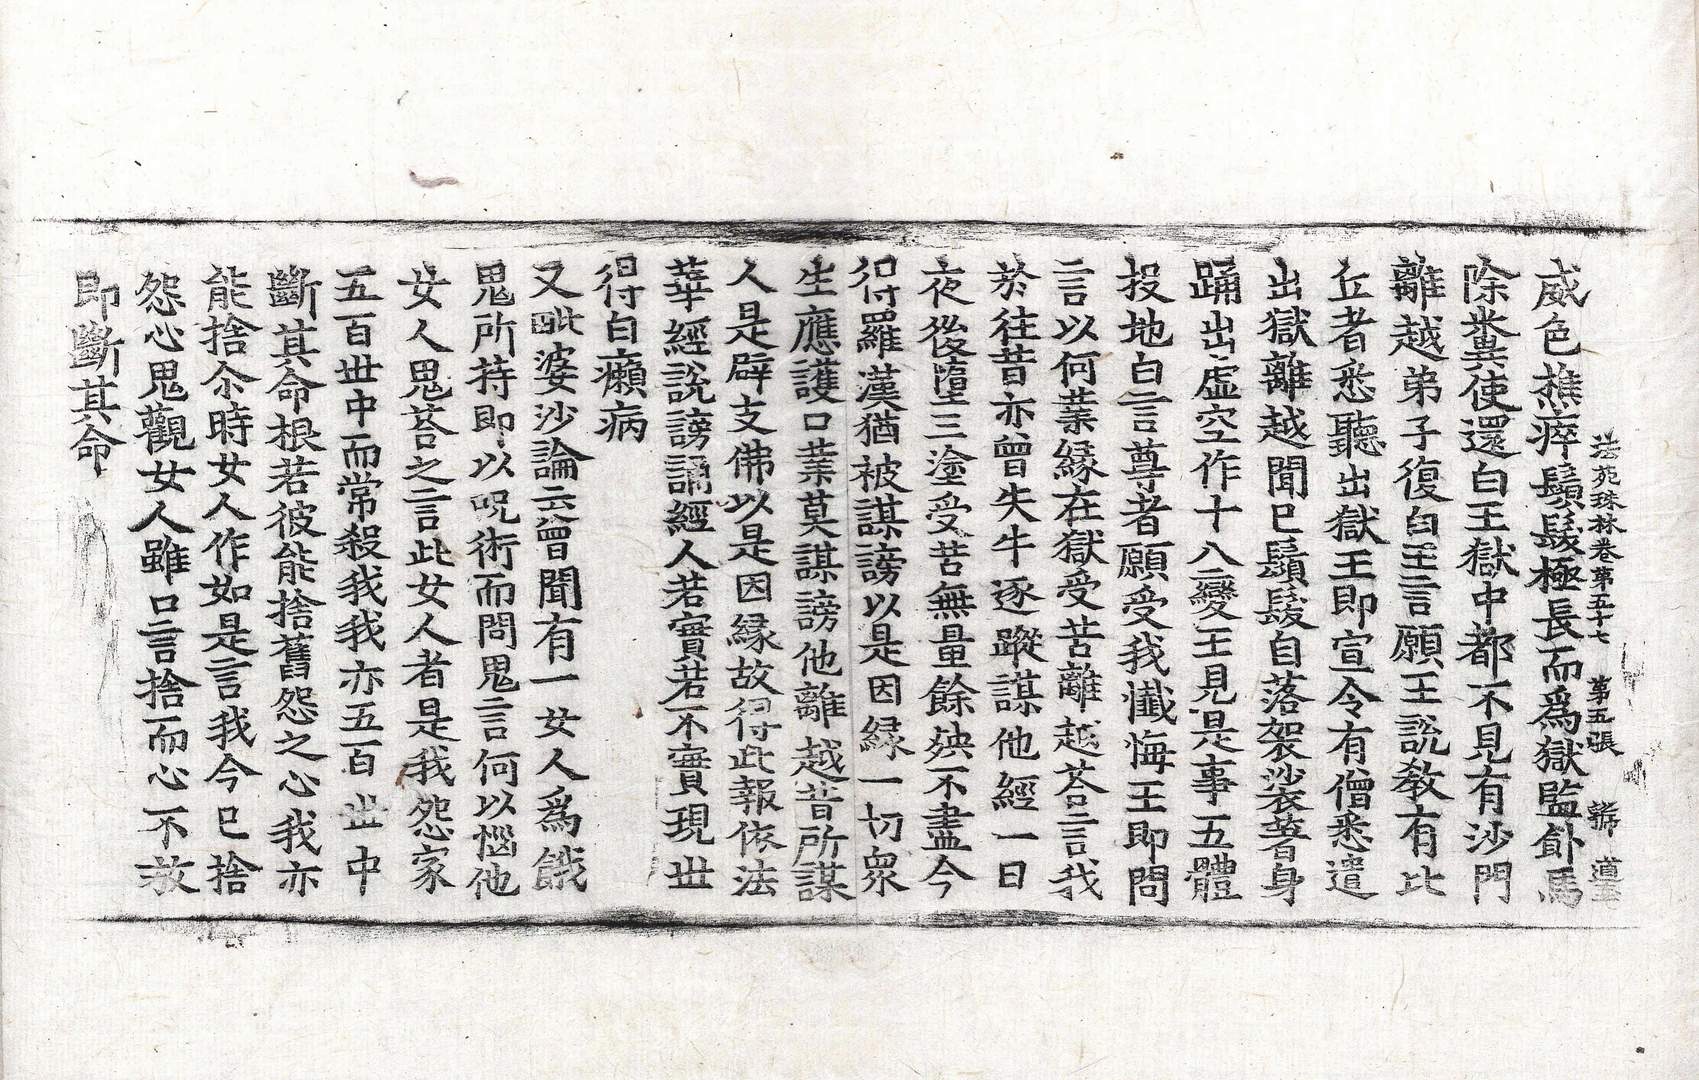 法苑珠林卷第五十七 第五張 號 道玄
威色燋瘁鬚髮極長而爲獄監飤馬
除糞使還白王獄中都不見有沙門
離越弟子復白王言願王說教有比
丘者悉聽出獄王即宣令有僧悉遣
出獄離越聞已鬚髮自落袈裟著身
踊出虛空作十八變王見是事五體
投地白言尊者願受我懺悔王即問
言以何業緣在獄受苦離越荅言我
於往昔亦曾失牛逐蹤謀他經一日
夜後墮三塗受苦無量餘殃不盡今
得羅漢猶被謀謗以是因緣一切衆
生應護口業莫謀謗他離越昔所謀
人是辟支佛以是因緣故得此報依法
華經說謗誦經人若實若不實現世
得白癩病
又毗婆沙論云曾聞有一女人爲餓
鬼所持即以呪術而問鬼言何以惱他
女人鬼荅之言此女人者是我怨家
五百世中而常殺我我亦五百世中
斷其命根若彼能捨舊怨之心我亦
能捨尒時女人作如是言我今已捨
怨心鬼觀女人雖口言捨而心不放
即斷其命